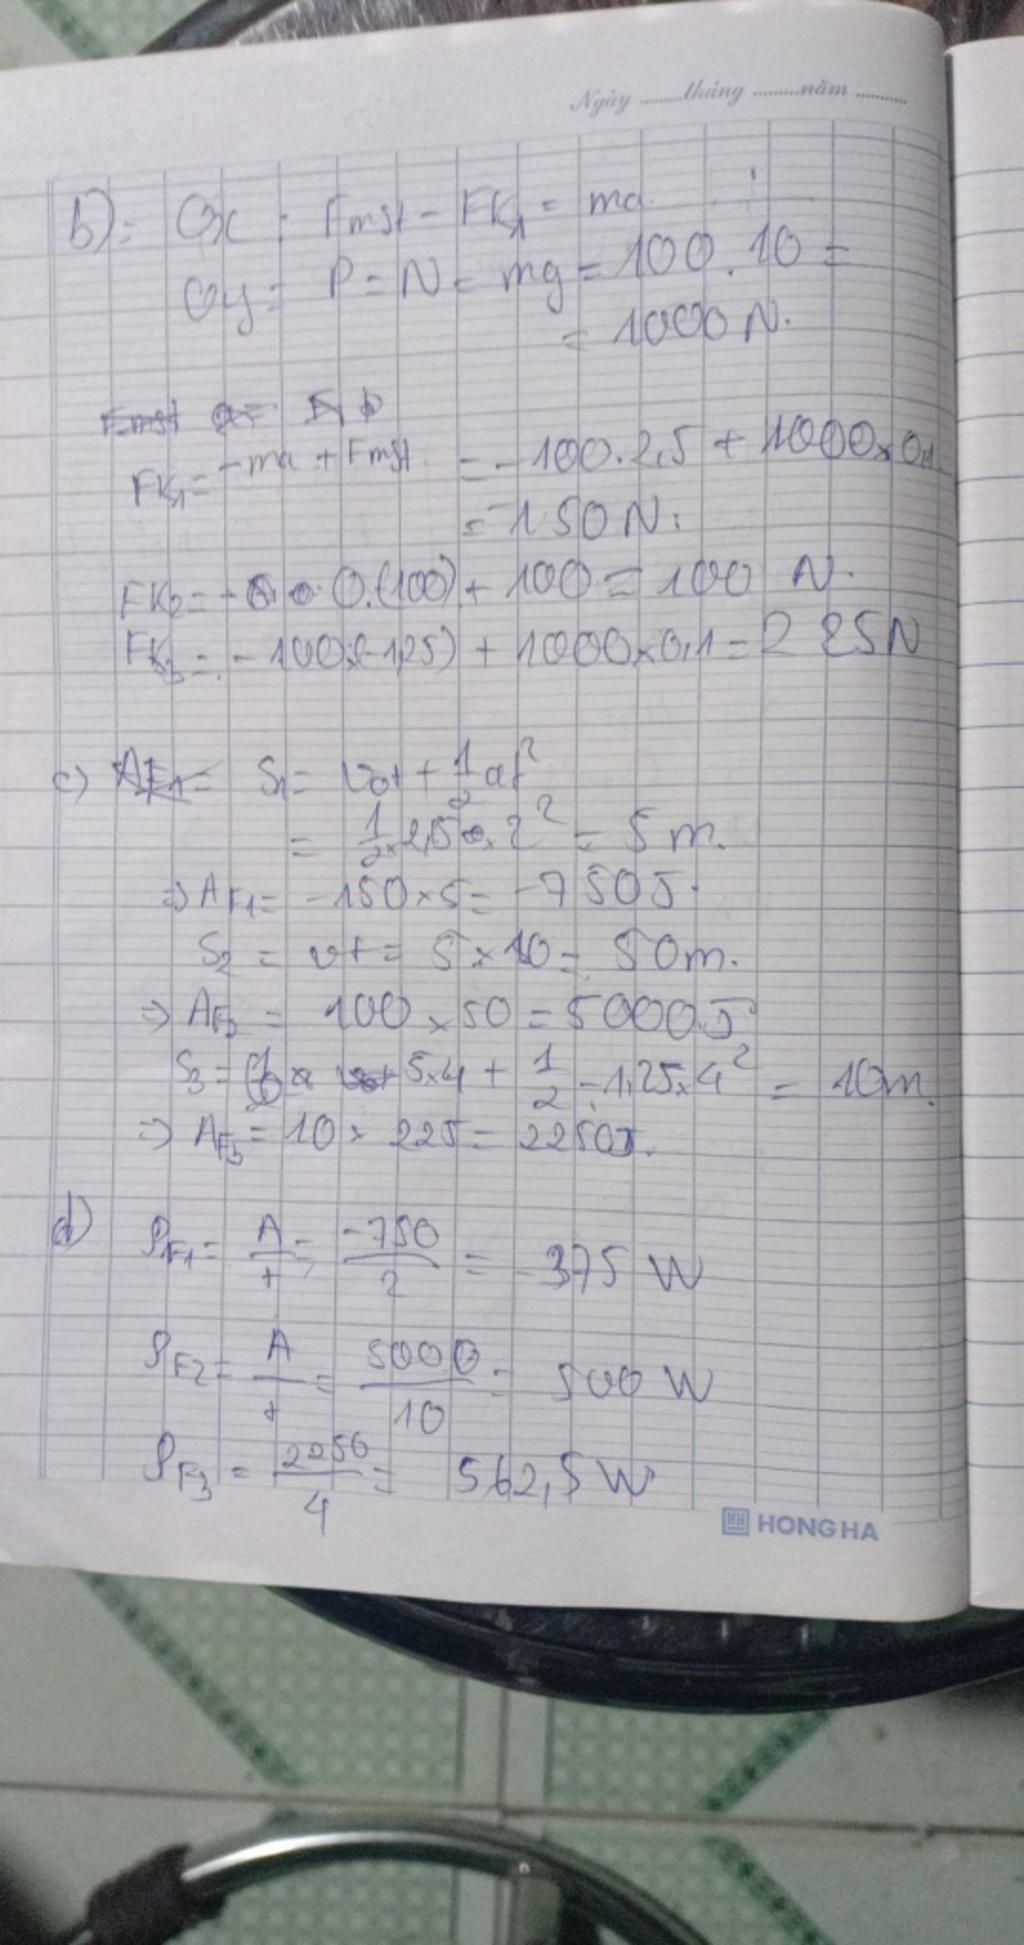 Ngày ........tháng .........năm ..........
b): Ox : Fmst - FK1 = ma
Oy: P = N = mg = 100.10 =
= 1000 N.
FK1 = -ma + Fmst = -100.2,5 + 1000x0,1
= -150 N.
FK2 = - 0.(100) + 100 = 100 N.
FK3 = -100.(-1,25) + 1000x0,1 = 225N
c) AF1= S1 = vot + 1/2 at²
= 1/2 x 2,5 x 2² = 5 m.
=> AF1 = -150 x 5 = -750J.
S2 = vt = 5 x 10 = 50m.
=> AF2 = 100 x 50 = 5000J
S3 = 5x4 + 1/2 . -1,25x4² = 10m.
=> AF3 = 10 x 225 = 2250J.
d) PF1 = A/t = -750/2 = -375 W
PF2 = A/t = 5000/10 = 500 W
PF3 = 2250/4 = 562,5 W
HH HONG HA